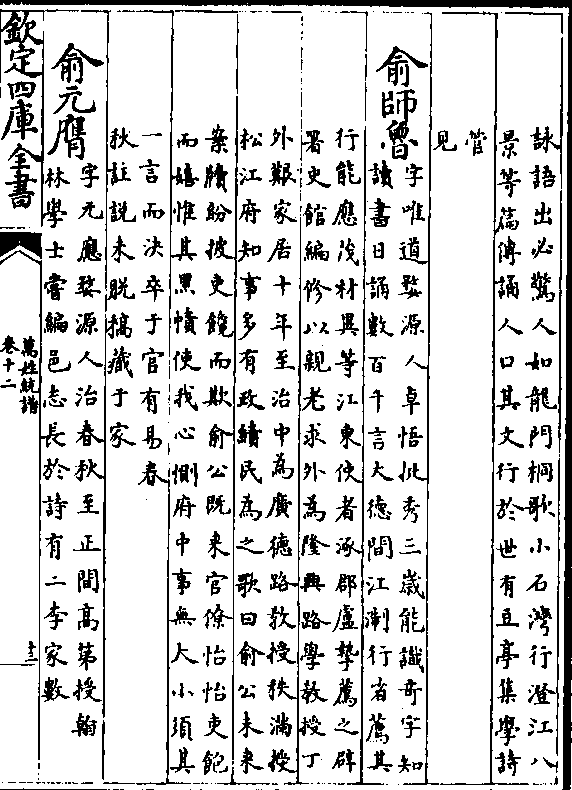 詠語出必驚人如龍門桐歌小石灣行澄江八
景等篇傳誦人口其文行於世有豆亭集學詩
管
見
俞師魯
字唯道婺源人卓悟秀三歲能識奇字知
讀書日誦數百千言大德間江淛行省薦其
行能應茂材異等江東使者涿郡盧摯薦之辟
署史館編修以親老求外為隆興路學教授丁
外艱家居十年至治中為廣德路教授秩滿授
松江府知事多有政績民為之歌曰俞公未來
案牘盼披吏饒而欺俞公既来官僚怡怡吏飽
而嬉惟其黑幘使我心惻府中事無大小須其
一言而决卒于官有易春
秋註說未脫稿藏于家
俞元膺
字元應婺源人治春秋至正間髙第授翰
林學士嘗編邑志長於詩有二李家數
欽定四庫全書
萬姓統譜
卷十二
十三